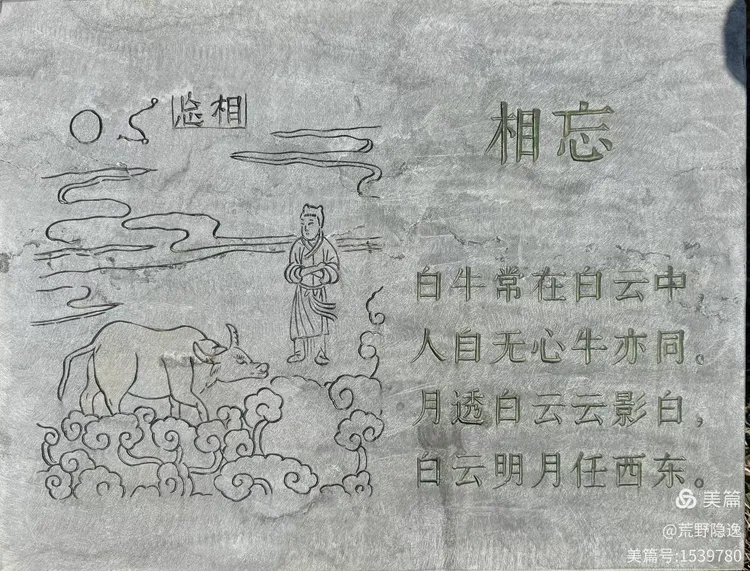 相忘
相忘
白牛常在白云中
人自无心牛亦同。
月透白云云影白，
白云明月任西东。
美篇
@荒野隐逸
美篇号:1539780